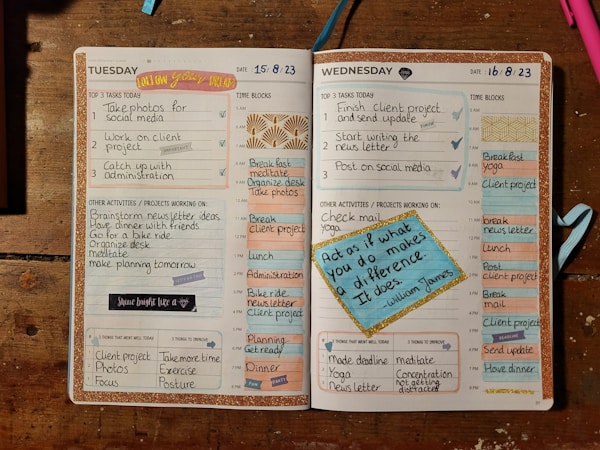 TUESDAY
FOLLOW your DREAM
DATE: 15/8/23
TOP 3 TASKS TODAY
1 Take photos for
social media
2 Work on client
project
3 Catch up with
administration
OTHER ACTIVITIES / PROJECTS WORKING ON:
Brainstorm newsletter ideas
Have dinner with friends
Go for a bike ride
Organize desk
meditate
make planning tomorrow
Shine bright like a
3 THINGS THAT WENT WELL TODAY
Client project
Photos
Focus
3 THINGS TO IMPROVE
Take more time
Exercise
Posture
TIME BLOCKS
5 AM
6 AM
7 AM
8 AM
9 AM
10 AM
11 AM
12 PM
1 PM
2 PM
3 PM
4 PM
5 PM
6 PM
7 PM
8 PM
Breakfast
meditate
Organize desk
Take photos
Break
Client project
Lunch
Administration
Bike ride
newsletter
Client project
Planning
Get ready
Dinner
FUN
PARTY
WEDNESDAY
DATE: 16/8/23
TOP 3 TASKS TODAY
1 Finish client project
and send update
2 Start writing the
news letter
3 Post on social media
OTHER ACTIVITIES / PROJECTS WORKING ON:
Check mail
yoga
Act as if what
you do makes
a difference.
It does.
- William James
3 THINGS THAT WENT WELL TODAY
made deadline
Yoga
News letter
3 THINGS TO IMPROVE
meditate
Concentration
not getting
distracted
TIME BLOCKS
Breakfast
yoga
Client project
break
news letter
Lunch
Post
client project
Break
mail
Client project
DEADLINE
Send update
Have dinner